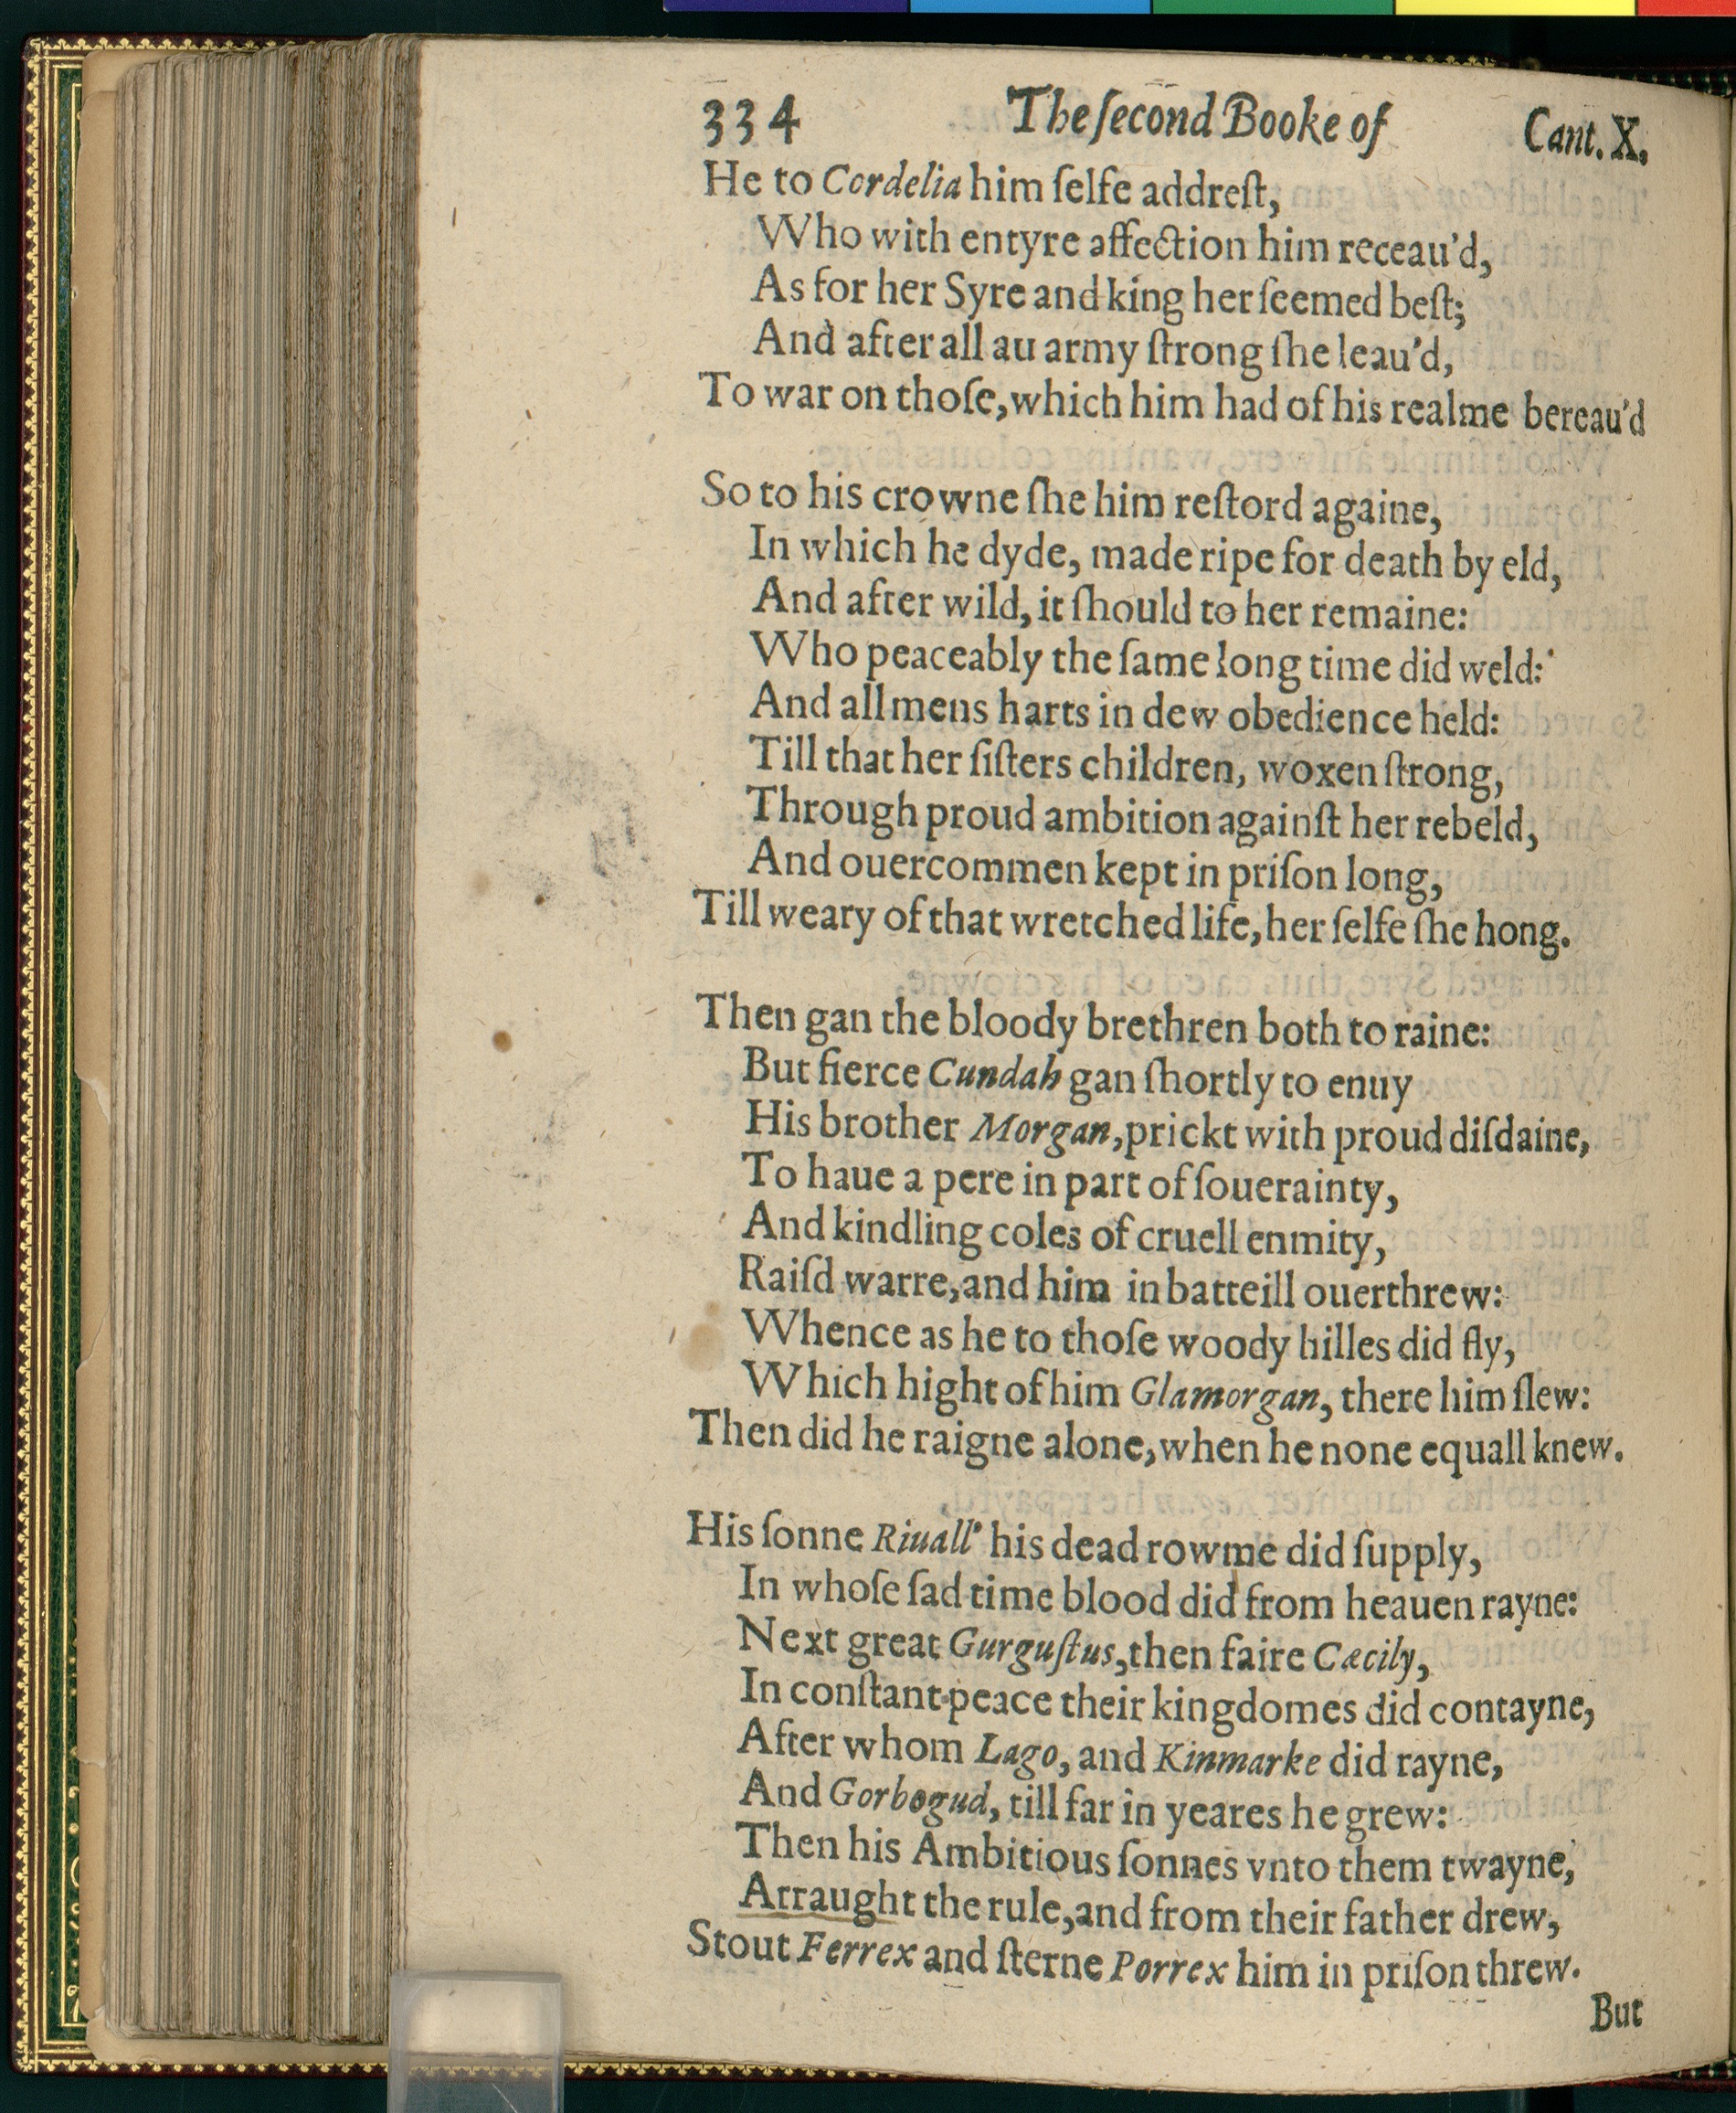 334 The ſecond Booke of Cant. X.
He to Cordelia him ſelfe addreſt,
Who with entyre affection him receau'd,
As for her Syre and king her ſeemed beſt;
And after all au army ſtrong ſhe leau'd,
To war on thoſe, which him had of his realme bereau'd
So to his crowne ſhe him reſtord againe,
In which he dyde, made ripe for death by eld,
And after wild, it ſhould to her remaine:
Who peaceably the ſame long time did weld:
And all mens harts in dew obedience held:
Till that her ſiſters children, woxen ſtrong,
Through proud ambition againſt her rebeld,
And ouercommen kept in priſon long,
Till weary of that wretched life, her ſelfe ſhe hong.
Then gan the bloody brethren both to raine:
But fierce Cundah gan ſhortly to enuy
His brother Morgan, prickt with proud diſdaine,
To haue a pere in part of ſouerainty,
And kindling coles of cruell enmity,
Raiſd warre, and him in batteill ouerthrew:
Whence as he to thoſe woody hilles did fly,
Which hight of him Glamorgan, there him ſlew:
Then did he raigne alone, when he none equall knew.
His ſonne Riuall' his dead rowme did ſupply,
In whoſe ſad time blood did from heauen rayne:
Next great Gurguſtus, then faire Cæcily,
In conſtant peace their kingdomes did contayne,
After whom Lago, and Kinmarke did rayne,
And Gorbogud, till far in yeares he grew:
Then his Ambitious ſonnes vnto them twayne,
Arraught the rule, and from their father drew,
Stout Ferrex and ſterne Porrex him in priſon threw.
But